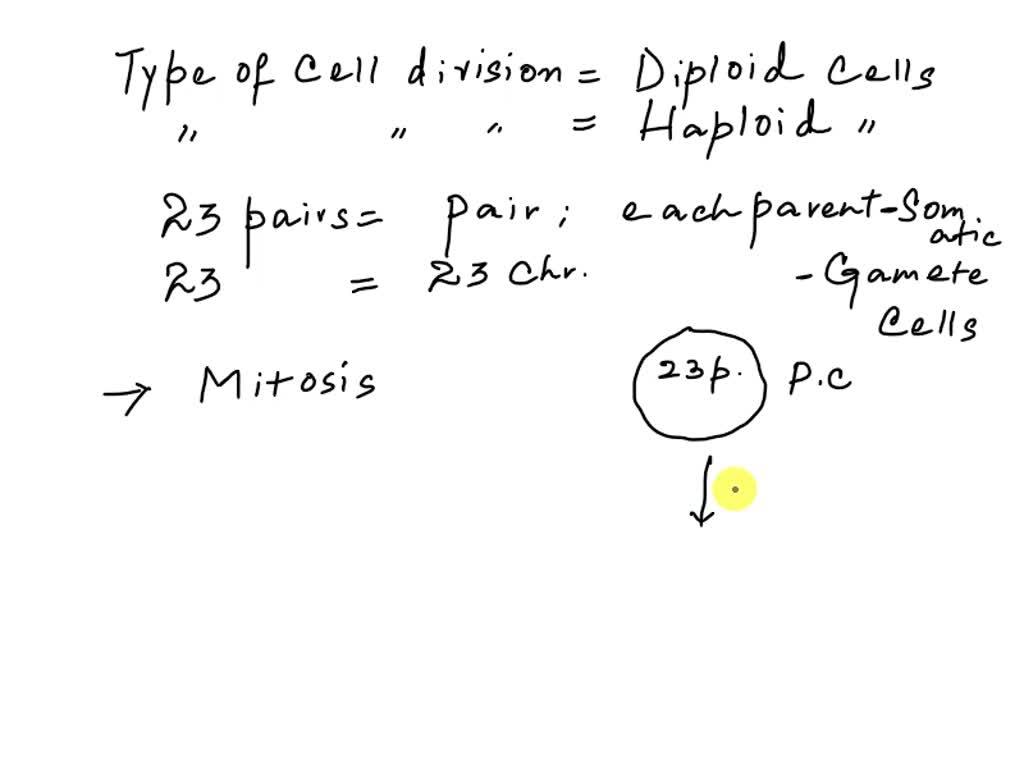 Type of cell division = Diploid cells
" " " = Haploid "
23 pairs = pair; each parent - Somatic
23 = 23 Chr. - Gamete
Cells
→ Mitosis 23p. P.C